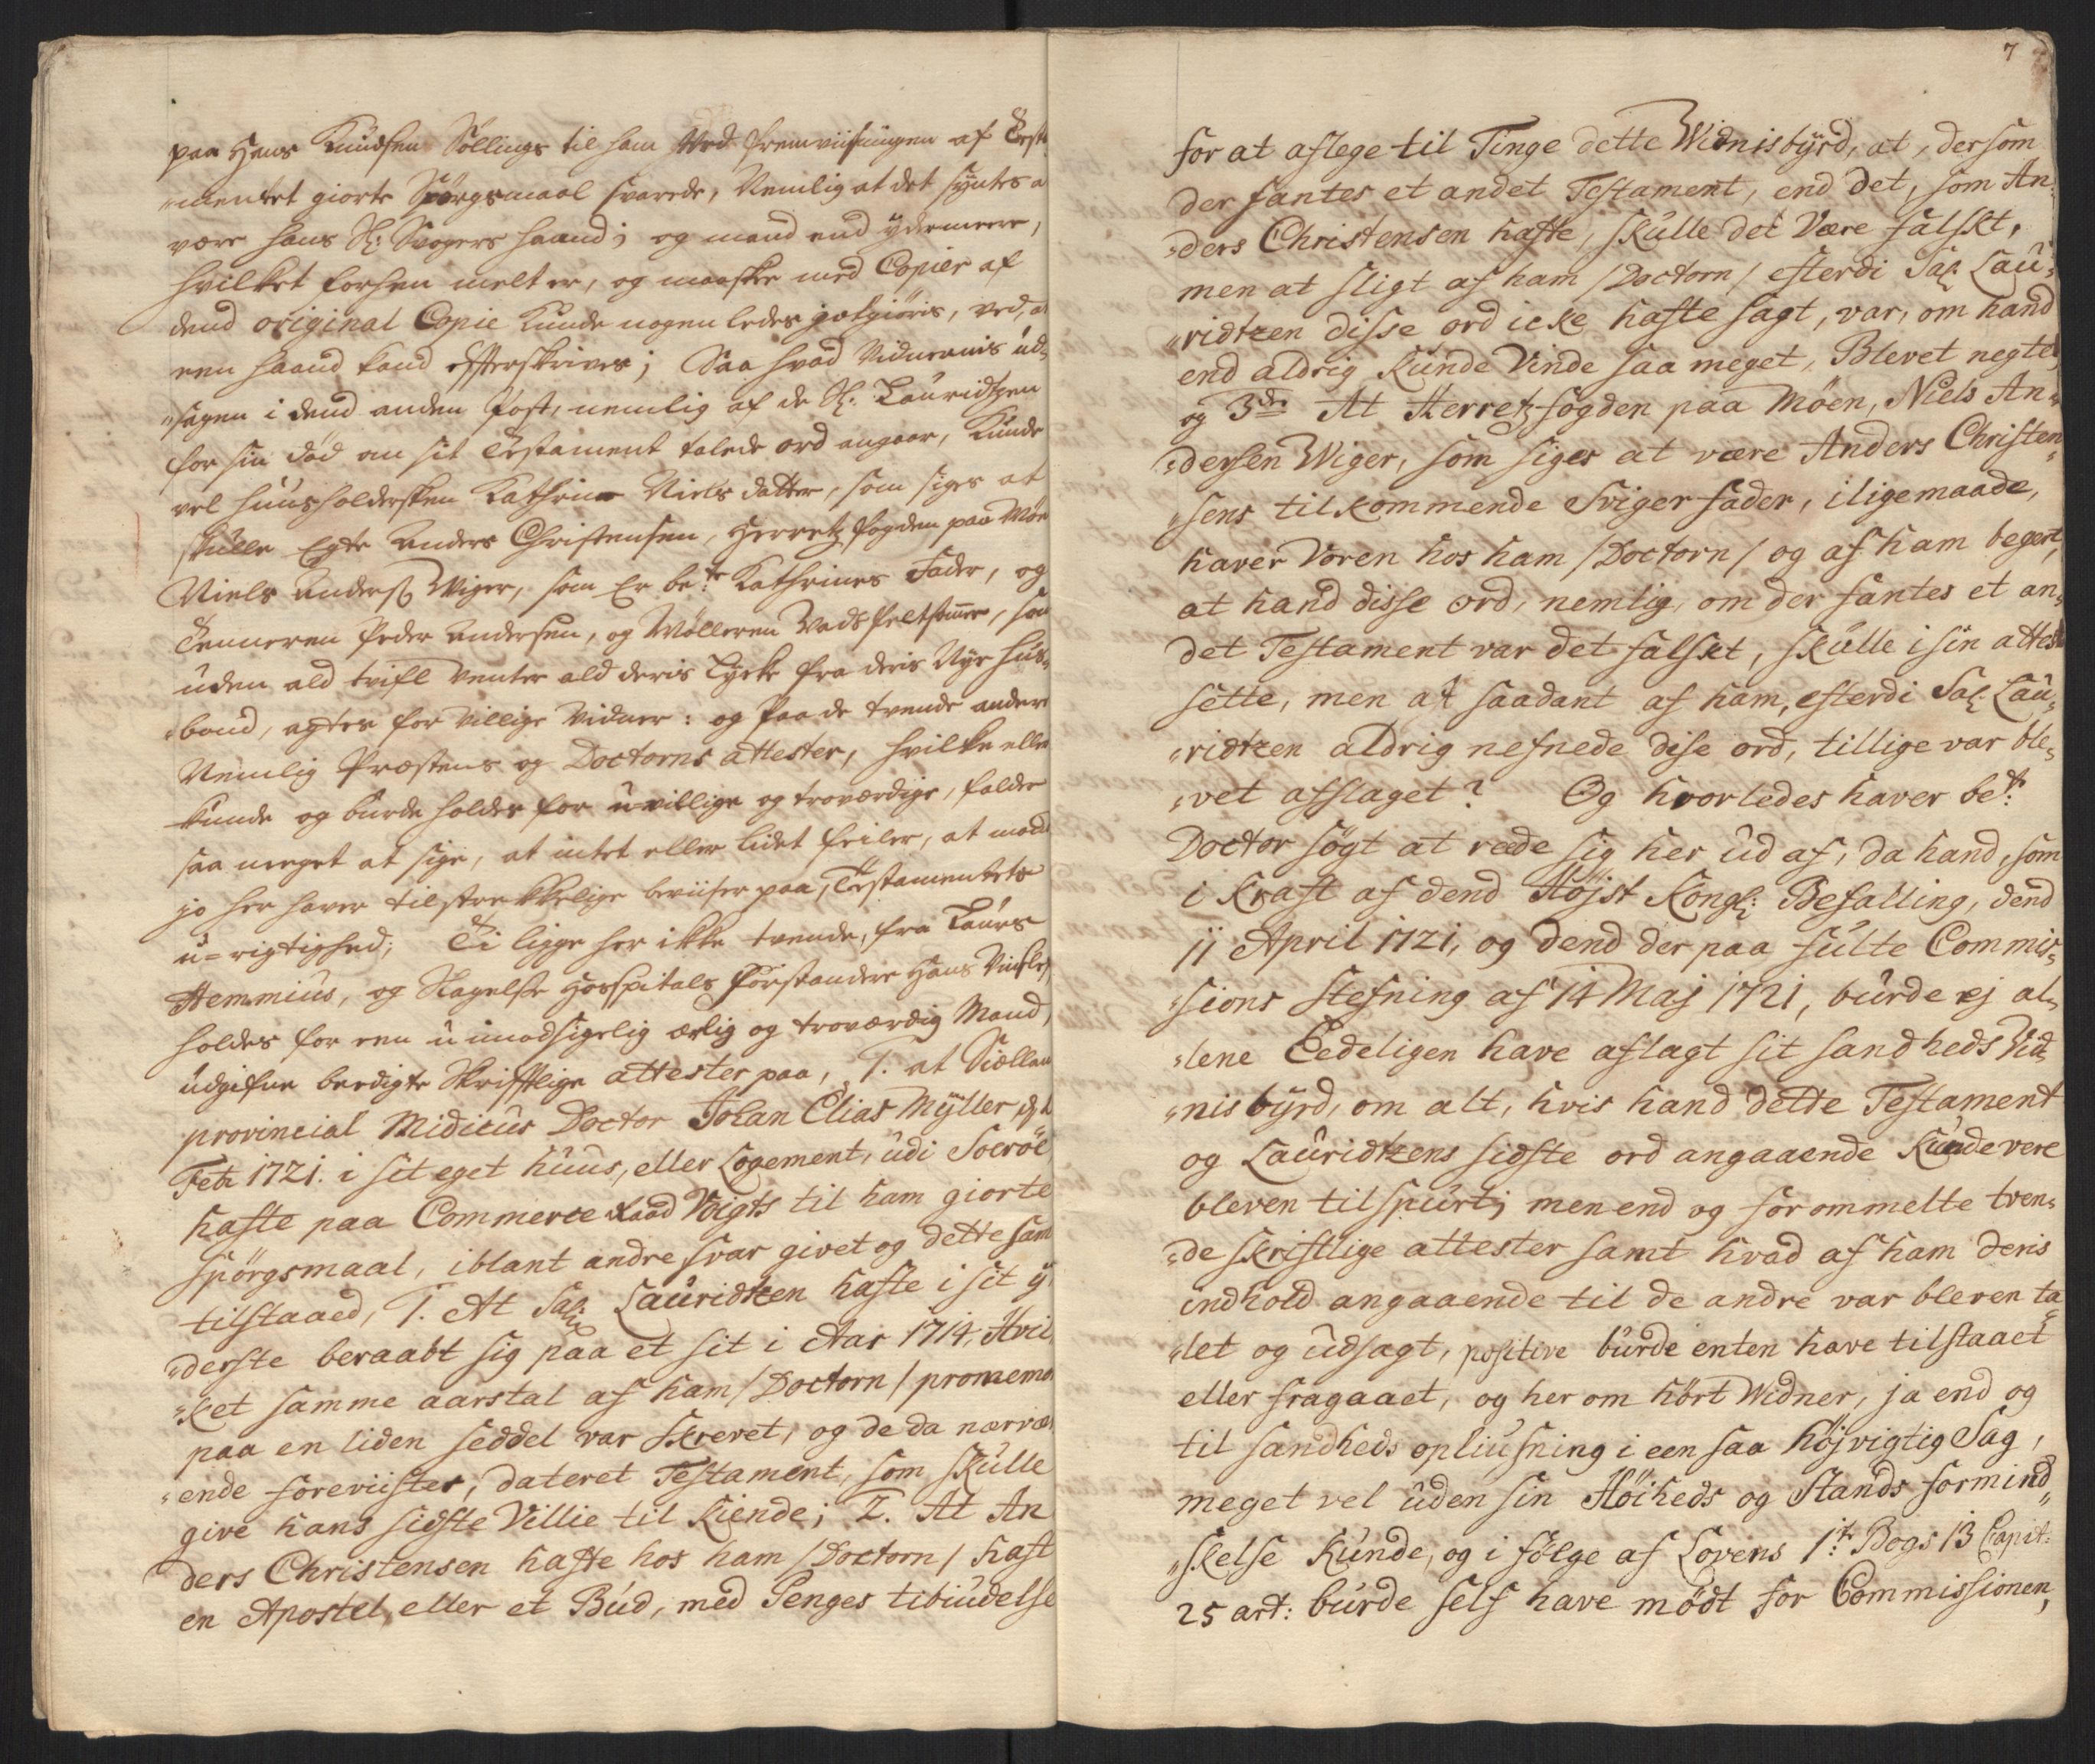 paa Hans Knudsen Söllings til ham Ved fremviisningen af Testa
„mentet giorte Spörgsmaal svarede, Nemlig at det syntes a
være hans Sl: Svogers haand; og mand end ydermeere,
hvilket forhen melt er, og maaskee med Copier af
dend original Copie kunde nogenledes godtgiöris, ved, at
een haand kand efterskrives; Saa hvad Vidnernis ud„
„sagen i dend anden Post, nemlig af de Sl: Lauridtzen
for sin död om sit Testament talede ord angaar, kunde
vel huusholdersken Kathrine Niels datter, som siges at
skulle Egte Anders Christensen, Herretz fogden paa Möen
Niels Anders: Wiger, som Er be:te Kathrines Fader, og
Tienneren Peder Andersen, og Mölleren Mads , som
uden ald tvifl venter ald deris Lycke fra deris Nye hus„
„bond, agtes for villige vidner: og paa de tvende andere
Nemlig Præstens og Doctorns attester, hvilke elles
kunde og burde holdes for u-villige og troværdige, falder
saa meeget at sige, at intet eller lidet feiler, at mand
jo her haver tilstrekkelige beviiser paa, Testamentets
u-rigtighed; Ti ligge her ikke tvende, fra Laurs
Hemmius, og Slagelse Hosspitals Forstandere Hans ,
holdes for een u imodsigelig ærlig og troværdig Mand,
udgifne beedigte Skrifftlige attester paa, 1. at Siællan
provincial Midicus Doctor Johan Elias Mÿller, d: 1
Feb 1721. i sit eget huus, eller Logement, udi Soeröe
hafte paa Commerce Raad Voigts til ham giorte
spörgsmaal, iblant andre svar givet og dette sam
tilstaaed, 1. At Sal: Lauridtzen hafte i sit ÿ
„derste beraabt sig paa et sit i Aar 1714, Hvil„
„ket samme aarstal af ham /Doctorn/ promemo
paa en liden seddel var skrevet, og de da nærvæ
„ende foreviister, dateret Testament, som skulle
give hans sidste Villie til Kiende; 2. At An
ders Christensen hafte hos ham /Doctorn/ haft
en Apostel, eller et Bud, med Penges tibiudelse
7
for at aflege til Tinge dette Widnisbÿrd, at, dersom
der fantes et andet Testament, end det, som An„
„ders Christensen hafte, skulle det Være falskt,
men at sligt af ham /Doctorn/ efterdi Sal: Lau„
„ridtzen disse ord icke hafte sagt, var, om hand
end aldrig kunde Vinde saa meget, Blevet negtet,
og 3die At Herretzfogden paa Möen, Niels An„
„dersen Wiger, som siges at være Anders Christen„
„sens tilkommende Sviger fader, i ligemaade,
haver Voren hos ham /Doctorn/ og af ham begert,
at hand disse ord, nemlig, om der fantes et an„
det Testament var det falskt, skulle i sin attest
sette, men at saadant af ham, efterdi Sal: Lau„
„ridtzen aldrig nefnede dise ord, tillige var ble„
„vet afslaget? Og hvorledes haver be:te
Doctor sögt atræde sig her ud af, da hand, som
i Kraft af dend Höjst Kongl: Befalling, dend
11 April 1721, og dend der paa fulte Commis„
„sions stefning af 14 Maj 1721, burde ej al„
„lene Eedeligen have aflagt sit sandheds Vid„
„nisbÿrd, om alt, hvis hand dette Testament
og Lauridtzens sidste ord angaaende kunde vere
bleven tilspurt; men end og forommelte tven„
„de skriftlige attester samt hvad af ham deris
indhold angaaende til de andre var bleven ta„
„let og udsagt, positive burde enten have tilstaaet
eller fragaaet, og her om hört Widner, ja end og
til sandheds opliusning i een saa höjvigtig Sag,
meget vel uden sin Höiheds og Stands formind„
„skelse kunde, og i fölge af Lovens 1te Bogs 13 Capit:
25 art: burde self have mödt for Commissionen,